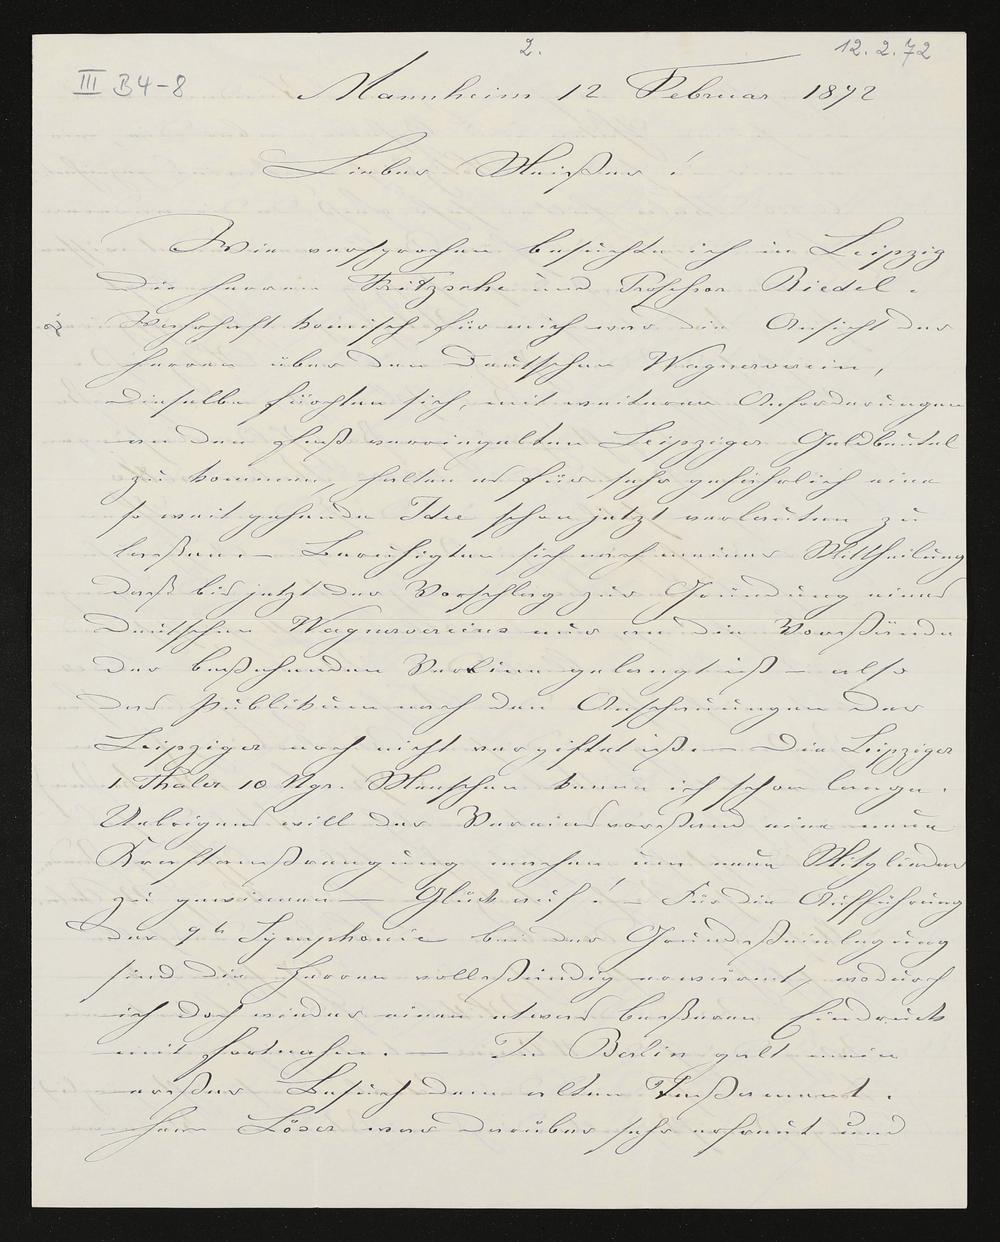 2.
12.2.72
III B4-8
Mannheim 12 Februar 1872
Lieber Meister!
Wie versprochen besuchte ich in Leipzig
die Herren Fritzsche und Professor Riedel.
Wahrhaft komisch für mich war die Ansicht der
Herren über den Deutschen Wagnerverein,
dieselbe fürchten sich, mit weiteren Anforderungen
an den fest verriegelten Leipziger Geldbeutel
zu kommen, halten es für sehr gefährlich eine
so weit gehende Idee schon jetzt verlauten zu
lassen. — Beruhigten sich nach meiner Mittheilung
daß bis jetzt der Vorschlag zur Gründung eines
Deutschen Wagnervereins nur an die Vorstände
der bestehenden Vereine gelangt ist — also
das Publikum nach den Anschauungen der
Leipziger noch nicht vergiftet ist. — Die Leipziger
1 Thaler 10 Ngr. Menschen kenne ich schon lange.
Uebrigens will der Vereinsvorstand eine neue
Kraftanstrengung machen um neue Mitglieder
zu gewinnen — Glück auf! — Für die Aufführung
der 9t Symphonie bei der Grundsteinlegung
sind die Herren vollständig erwärmt, wodurch
ich doch wieder einen etwas besseren Eindruck
mit fortnahm. — In Berlin galt mein
erster Besuch dem alten Instrument.
Herr Löser war darüber sehr erfreut und